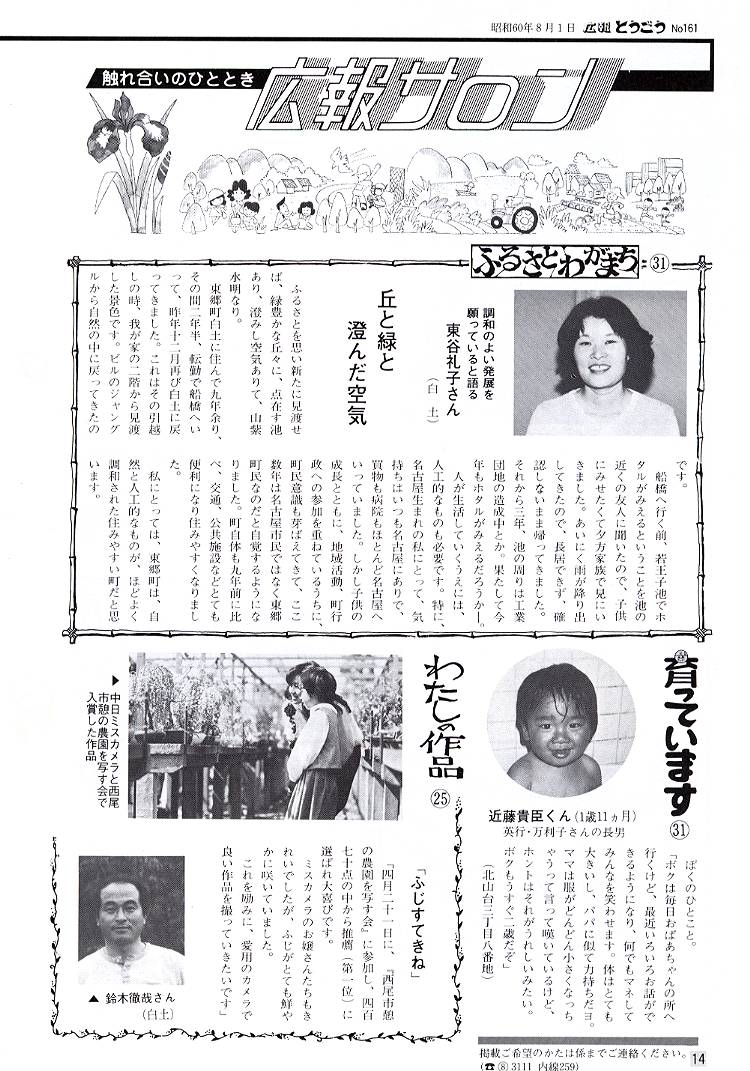 昭和60年8月1日 広報とうごう No161
触れ合いのひととき
広報サロン
ふるさとわがまち
㉛
調和のよい発展を
願っていると語る
東谷礼子さん
(白土)
丘と緑と
澄んだ空気
ふるさとを思い新たに見渡せ
ば、緑豊かな丘々に、点在す池
あり、澄みし空気ありて、山紫
水明なり。
東郷町白土に住んで九年余り、
その間二年半、転勤で船橋へい
って、昨年十二月再び白土に戻
ってきました。これはその引越
しの時、我が家の二階から見渡
した景色です。ビルのジャング
ルから自然の中に戻ってきたの
です。
船橋へ行く前、若王子池でホ
タルがみえるということを池の
近くの友人に聞いたので、子供
にみせたくて夕方家族で見にい
きました。あいにく雨が降り出
してきたので、長居できず、確
認しないまま帰ってきました。
それから三年、池の周りは工業
団地の造成中とか。果たして今
年もホタルがみえるだろうか―。
人が生活していくうえには、
人工的なものも必要です。特に、
名古屋生まれの私にとって、気
持ちはいつも名古屋にありで、
買物も病院もほとんど名古屋へ
いっていました。しかし子供の
成長とともに、地域活動、町行
政への参加を重ねているうちに、
町民意識も芽ばえてきて、ここ
数年は名古屋市民ではなく東郷
町民なのだと自覚するようにな
りました。町自体も九年前に比
べ、交通、公共施設などとても
便利になり住みやすくなりまし
た。
私にとっては、東郷町は、自
然と人工的なものが、ほどよく
調和された住みやすい町だと思
います。
育っています
㉛
近藤貴臣くん(1歳11ヵ月)
英行・万利子さんの長男
ぼくのひとこと。
「ボクは毎日おばあちゃんの所へ
行くけど、最近いろいろお話がで
きるようになり、何でもマネして
みんなを笑わせます。体はとても
大きいし、パパに似て力持ちだヨ。
ママは服がどんどん小さくなっち
ゃうって言って嘆いているけど、
ホントはそれがうれしいみたい。
ボクもうすぐ二歳だぞ」
(北山台三丁目八番地)
わたしの作品
㉕
▶中日ミスカメラと西尾
市憩の農園を写す会で
入賞した作品
「ふじすてきね」
「四月二十一日に、『西尾市憩
の農園を写す会』に参加し、四百
七十点の中から推薦(第一位)に
選ばれ大喜びです。
ミスカメラのお嬢さんたちもき
れいでしたが、ふじがとても鮮や
かに咲いていました。
これを励みに、愛用のカメラで
良い作品を撮っていきたいです」
▲ 鈴木徹哉さん
(白土)
掲載ご希望のかたは係までご連絡ください。
(☎⑧3111 内線259)
14